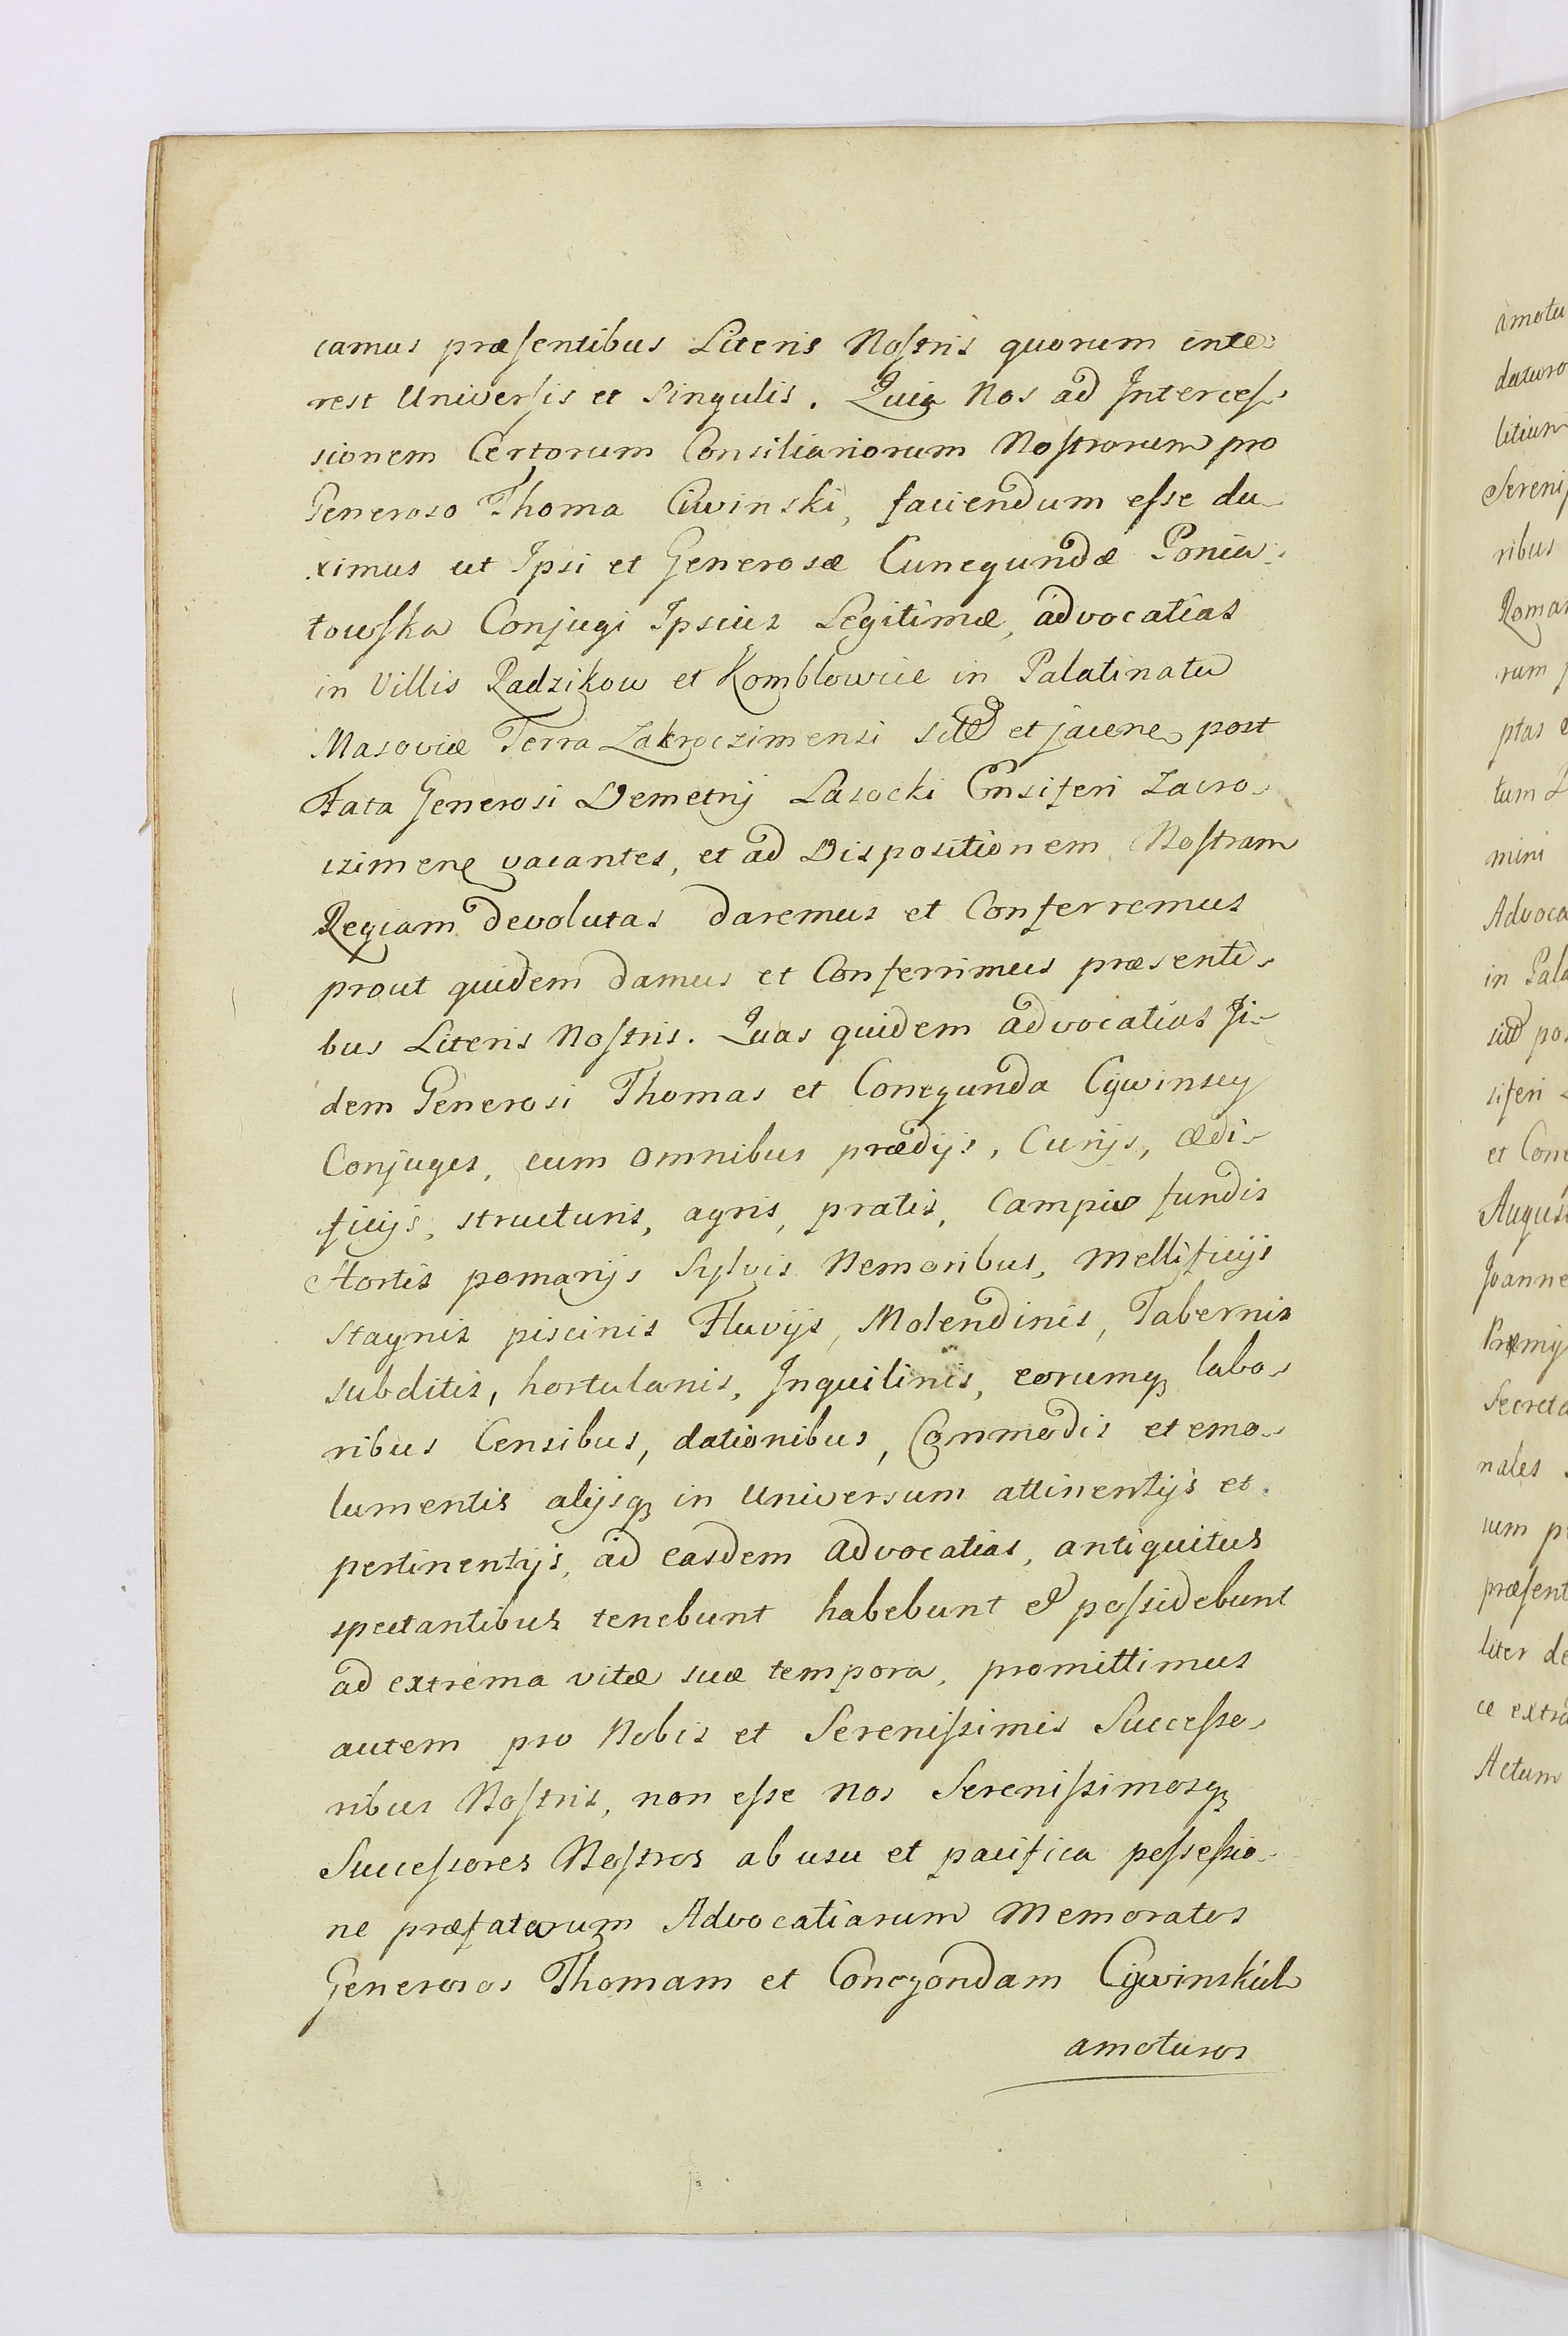 camus præſentibus Literis Noſtris quorum inte-
rest Univerſis et Singulis. Quia Nos ad Interceſ-
sionem Certorum Consiliariorum Noſtrorum pro
Generoso Thoma Ciwinski, faciendum eſse du-
ximus ut Ipsi et Generosæ Cunegundæ Ponia-
towſka Conjugi Ipsius Legitimæ, advocatias
in Villis Radzikow et Komblowice in Palatinatu
Masoviæ Terra Zakroczimensi sit et jacene post
Fata Generosi Demetrij Lasocki Ensiferi Zacro-
czimene vacantes, et ad Dispositionem Noſtram
Regiam devolutas daremus et Conferremus
prout quidem damus et Conferrimus præsenti-
bus Literis Noſtris. Quas quidem advocatias Ji-
dem Generosi Thomas et Conegunda Cywinscy
Conjuges, cum omnibus prædijs, Curijs, ædi-
ficijs, structuris, agris, pratis, Campis fundis
Hortis pomarijs Sylvis Nemoribus, Mellificijs
stagnis piscinis Fluvijs, Molendinis, Tabernis
subditis, hortulanis, Inquilinis, eorumq; labo-
ribus Censibus, dationibus, Commodis et emo-
lumentis alijsq; in Universum attinentijs et
pertinentijs, ad easdem advocatias, antiquitus
spectantibus tenebunt habebunt & poſsidebunt
ad extrema vitæ suæ tempora, promittimus
autem pro Nobis et Sereniſsimis Succeſso-
ribus Noſtris, non eſse nos Sereniſsimosq;
Succeſsores Noſtros ab usu et pacifica poſseſsio-
ne præfatarum Advocatiarum Memoratos
Generosos Thomam et Conegondam Cywinskich
amoturos
amotu
daturo
litium
Sereniſ
ribus
Roman
rum p
ptas e
tum
mini
Advoca
in Pala
sit pos
siferi
et Cone
August
Joanne
Præmij
Secreta
nales
præſent
liter de
ce extra
Actum